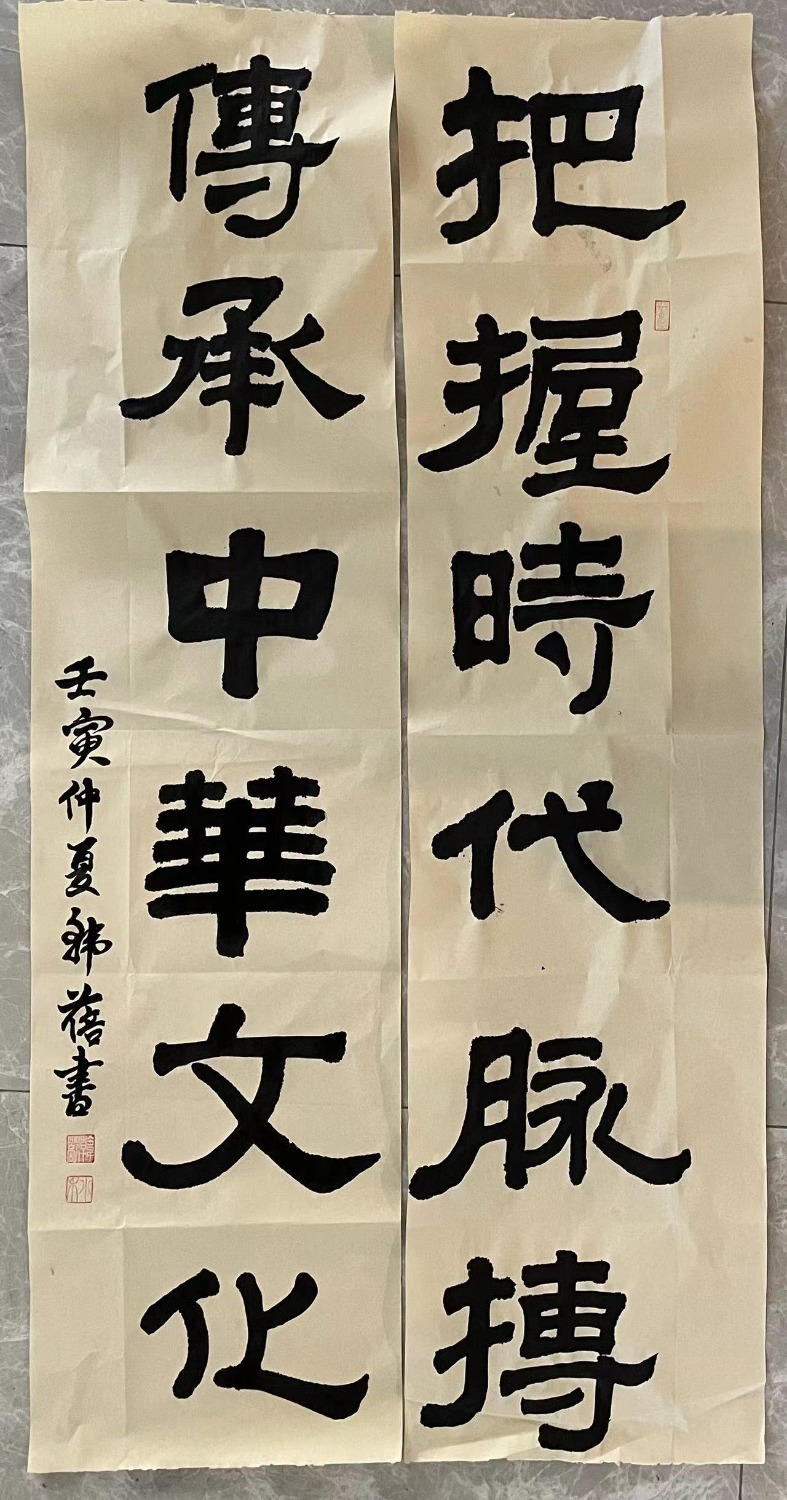 把握時代脉搏
傳承中華文化
壬寅仲夏韩蓓書